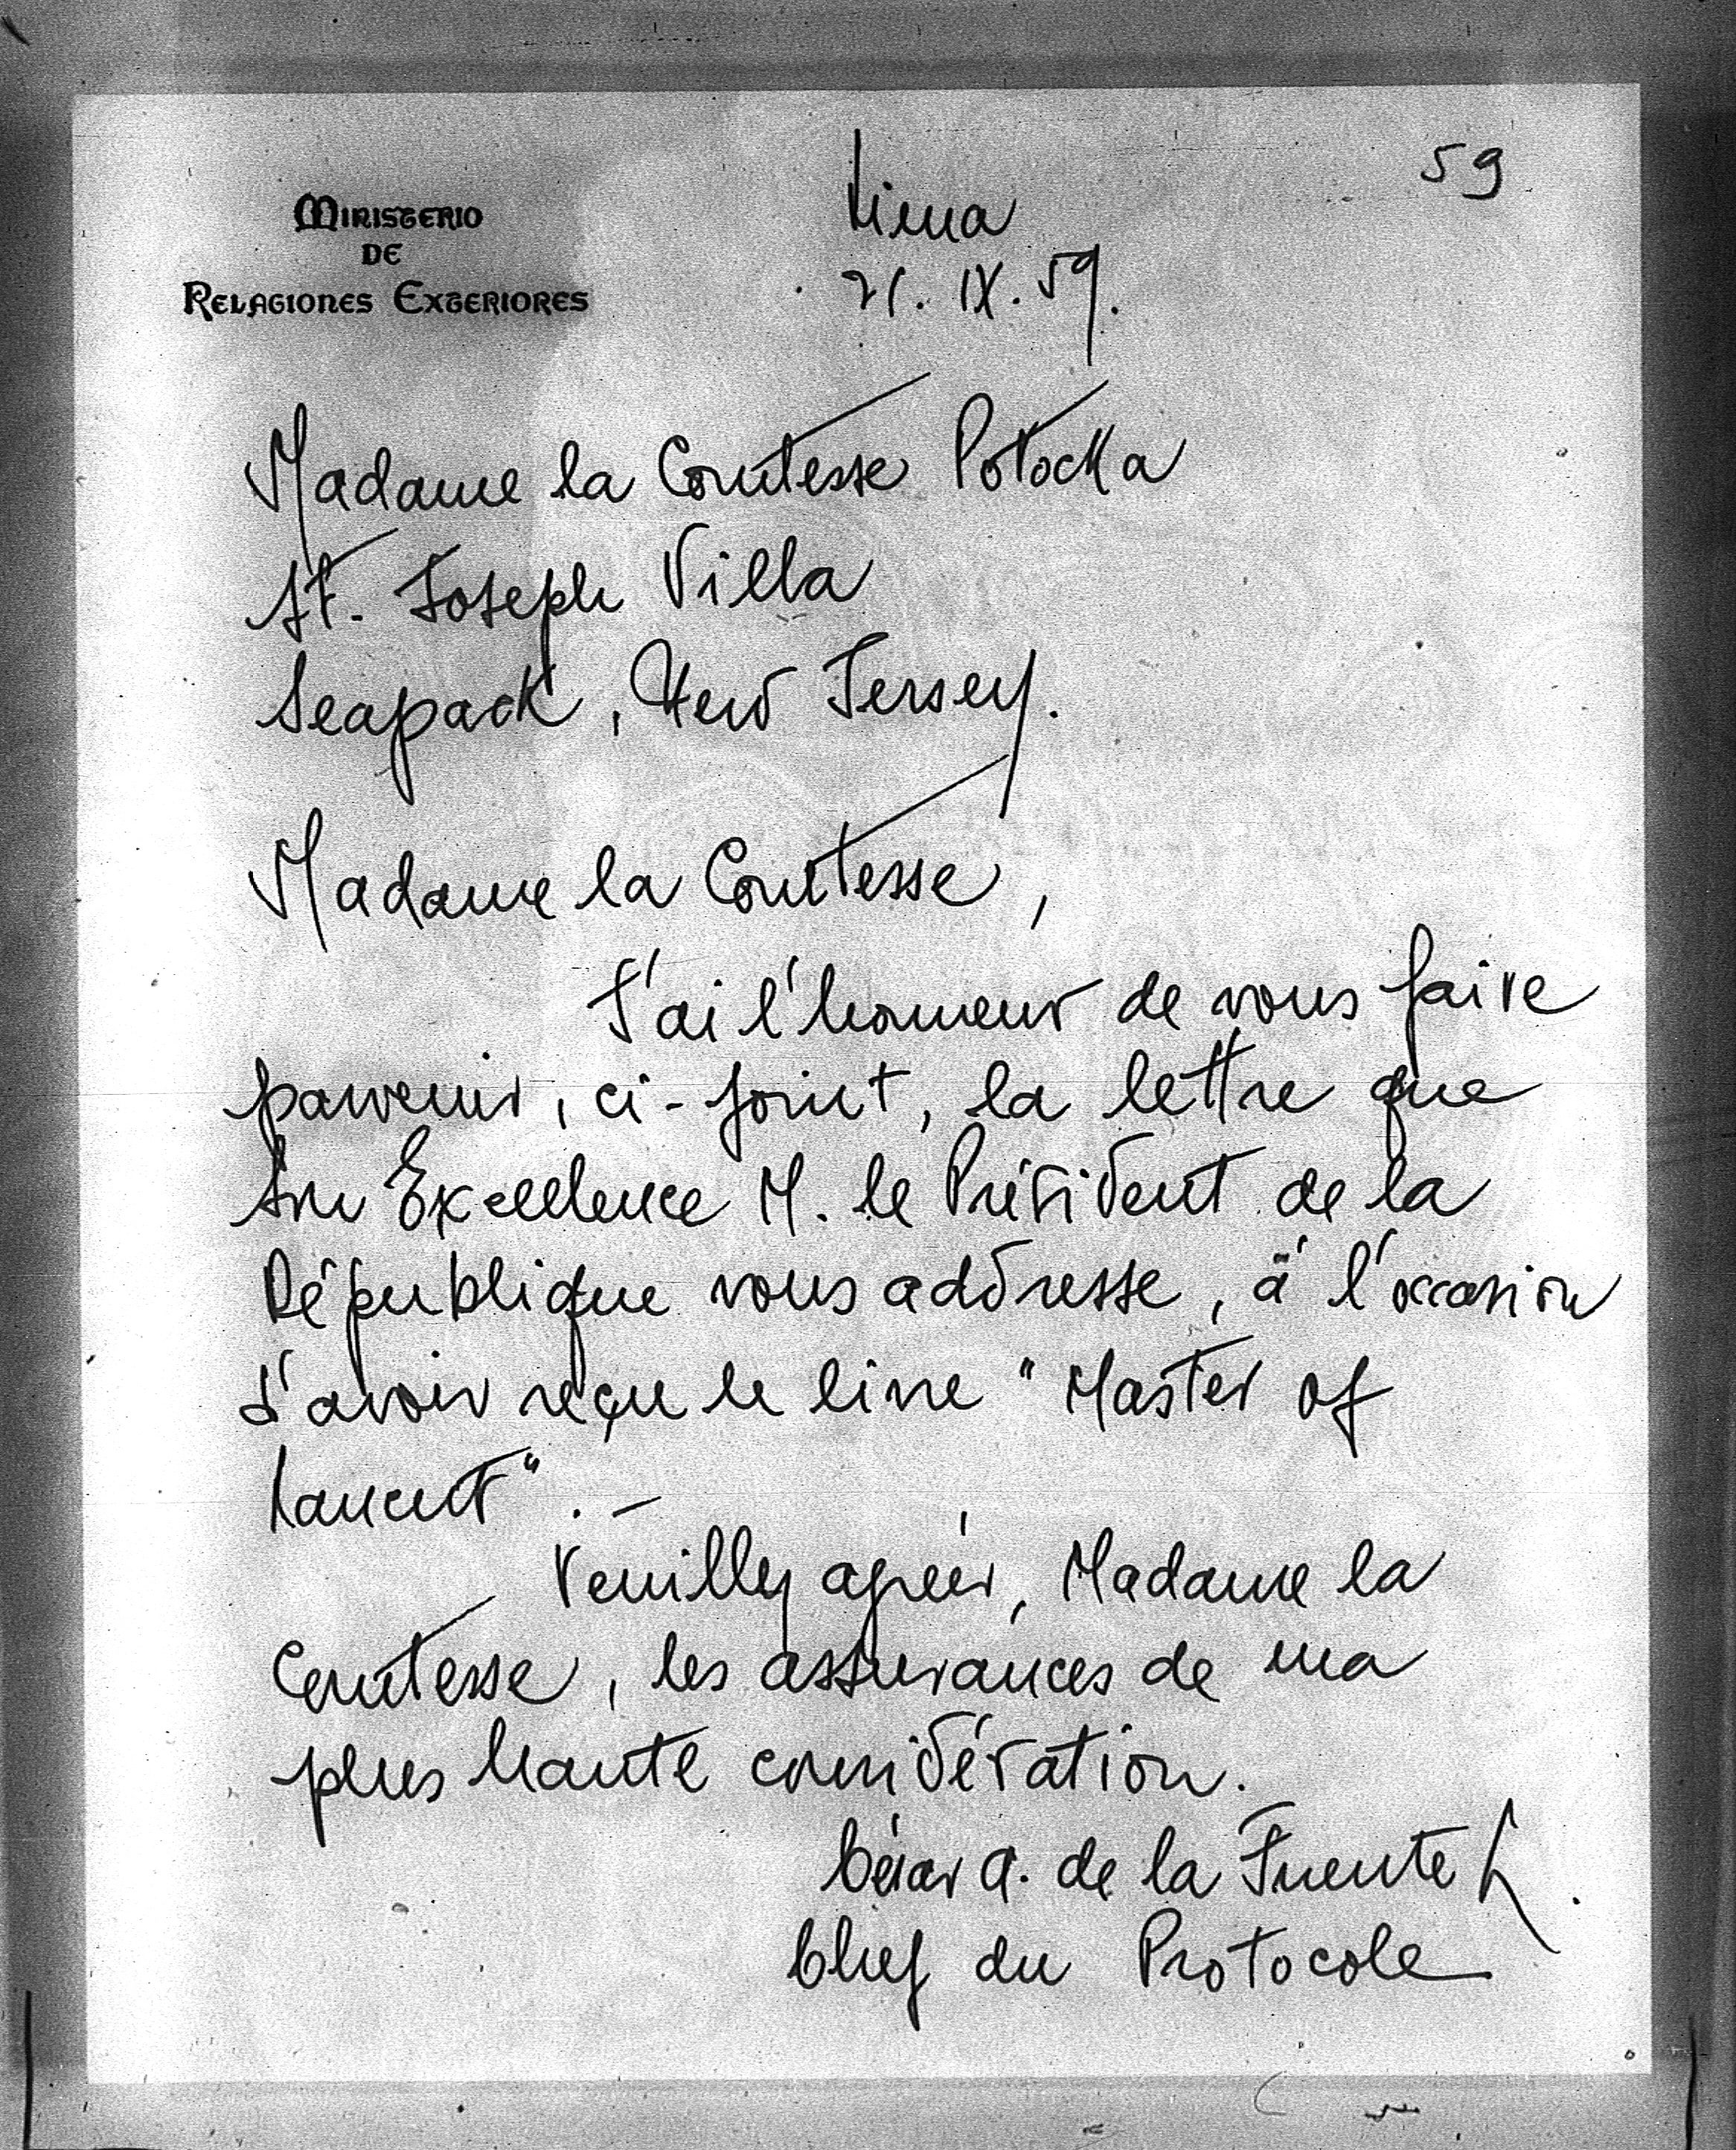 59
MINISTERIO
DE
RELACIONES EXTERIORES
Lima
21. IX. 59.
Madame la Comtesse Potocka
St. Joseph Villa
Seapack, New Jersey.
Madame la Comtesse,
J'ai l'honneur de vous faire
parvenir, ci-joint, la lettre que
Son Excellence M. le Président de la
République vous addresse, à l'occasion
d'avoir reçu le livre "Master of
Lancut". -
Veuillez agréer, Madame la
Comtesse, les assurances de ma
plus haute considération.
César A. de la Fuente L.
Chef du Protocole